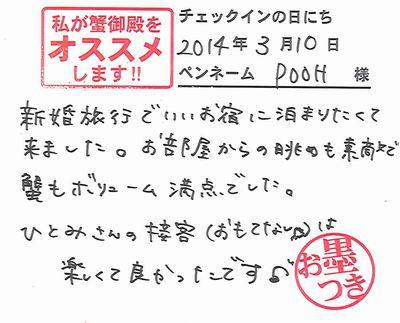 私が蟹御殿を
オススメ
します!!
チェックインの日にち
2014年3月10日
ペンネーム POOH 様
新婚旅行でいいお宿に泊まりたくて
来ました。お部屋からの眺めも素敵で
蟹もボリューム満点でした。
ひとみさんの接客(おもてなし)は
楽しくて良かったです♪
お墨つき